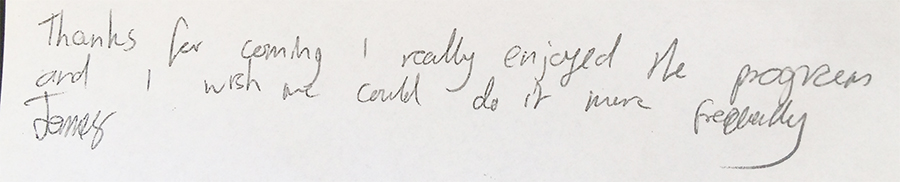 Thanks for coming I really enjoyed the program
and I wish we could do it more frequently
James